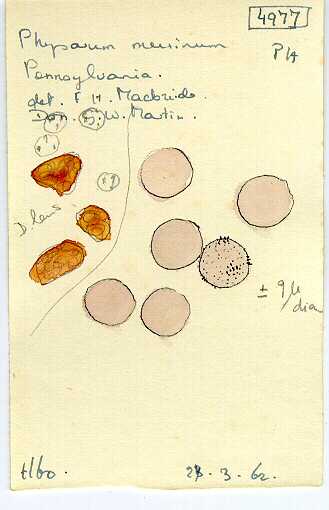 4977
Physarum murinum
Pennsylvania.
det. T H. Macbride.
Don. G. W. Martin.
± 9 µ
diam
Elbo.
28. 3. 62.